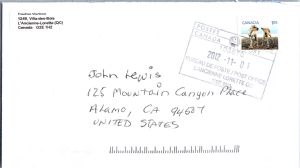 1249, Villa-des-Bois
L'Ancienne-Lorette (QC)
Canada G2E 1H2
CANADA
POSTES
CANADA
2012 -11- 01
BUREAU DE POSTE / POST OFFICE
L'ANCIENNE-LORETTE QC
John Lewis
125 Mountain Canyon Place
Alamo, CA 94507
UNITED STATES